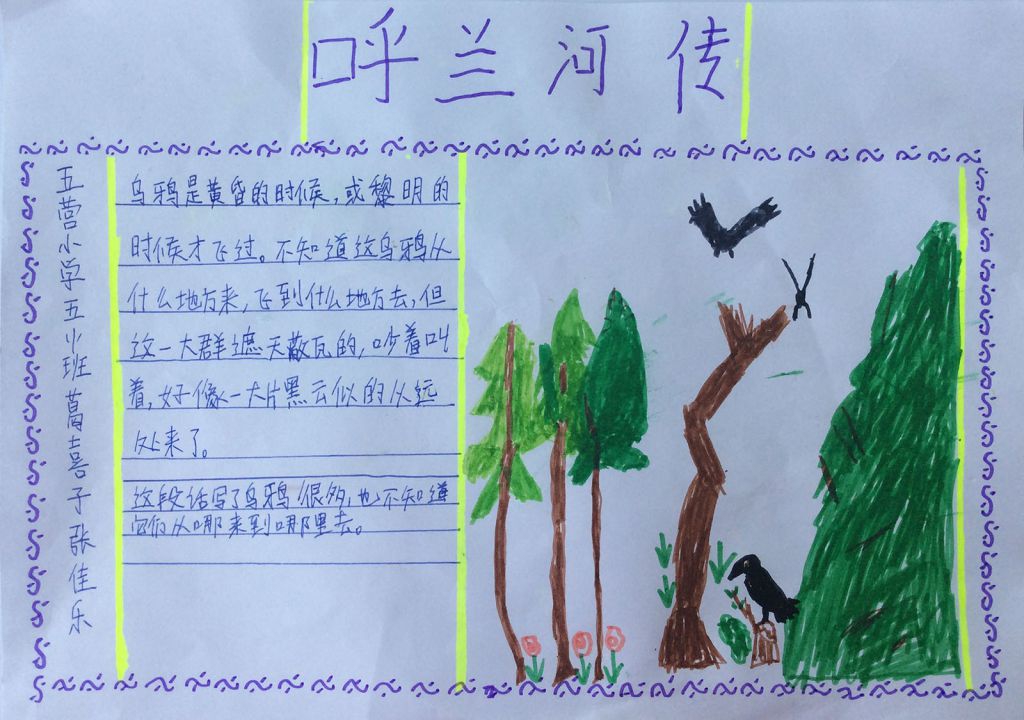 呼兰河传
五营小学五小班葛喜子张佳乐
乌鸦是黄昏的时候,或黎明的
时候才飞过。不知道这乌鸦从
什么地方来,飞到什么地方去,但
这一大群遮天蔽瓦的,吵着叫
着,好像一大片黑云似的从远
处来了。
这段话写了乌鸦很多,也不知道
它们从哪来到哪里去。